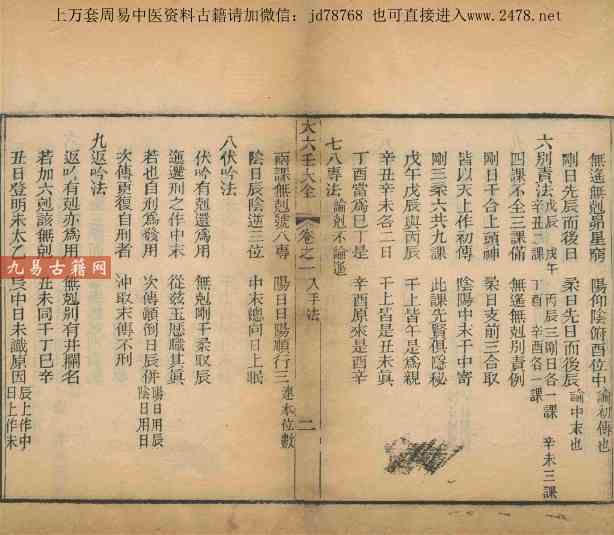 上万套周易中医资料古籍请加微信：jd78768 也可直接进入www.2478.net
無遙無剋昴星窮 陽仰陰俯酉位中 論初傳也
剛日先辰而後日 柔日先日而後辰 論中末也
六別責法 戊辰 戊午 丙辰三剛日各一課 辛未三課 辛丑二課 丁酉 辛酉各一課
四課不全三課備 無遙無剋別責例
剛日干合上頭神 柔日支前三合取
皆以天上作初傳 陰陽中末干中寄
剛三柔六共九課 此課先賢俱隱秘
戊午戊辰與丙辰 干上皆午是爲親
辛丑辛未各二日 干上皆是丑未眞
丁酉當爲巳丁是 辛酉原來是酉辛
七八專法 論剋不論遙
大六壬大全 卷之一 入手法 二
兩課無剋號八專 陽日日陽順行三 連本位數
陰日辰陰逆三位 中末總向日上眠
八伏吟法
伏吟有剋還爲用 無剋剛干柔取辰
迤邐刑之作中末 從茲玉歷職其眞
若也自刑爲發用 次傳顛倒日辰併 陽日用辰 陰日用日
次傳更復自刑者 沖取末傳不刑
九返吟法
返吟有剋亦爲用 無剋別有井欄名
若加六剋該無剋 丑未同干丁巳辛
丑日登明未太乙 辰中日末識原因 辰上作中 日上作末
九易古籍网